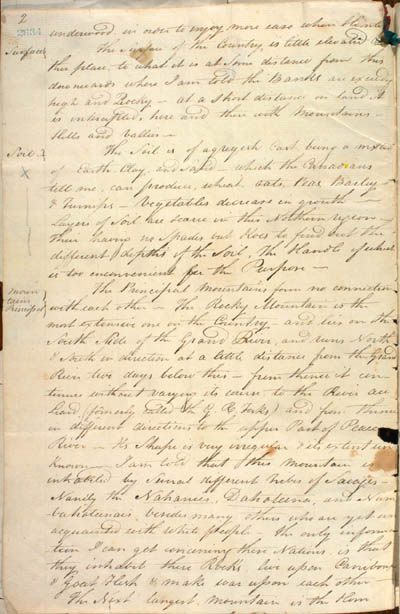 2
underwood, in order to enjoy more ease when
Surface
The Surface of the Country, is little elevated
this place, to what it is at Some distance from this
downwards where I am told the Banks are exceeding
high and Rocky — at a Short distance on land it
is intersected, here and there with Mountains —
Hills and Vallies —
Soil
The Soil is of a greyish Cast being a mixture
of Earth, Clay, and Sand — which the Canadians
tell me, can produce, wheat, oats, Peas, Barley —
& Turnips — Vegetables decrease in growth —
Layers of Soil are scarce in this Northern region —
There having no Spades but Hoes to find out the
different depths of the Soil, the Handle of which
is too inconvenient for the Purpose —
Principal
The Principal Mountains form no connection
with each other — The Rocky Mountain is the
most extensive one in the Country — and lies on the
South Side of the Grand River, and runs North
& South in direction at a little distance from the Grand
River two days below this — from thence it con
tinues without varying its course to the River
Land (formerly called the Forks) and from thence
in different directions to the upper Part of Peace
River — Its Shape is very irregular & its extent un
known — I am told that this Mountain is
inhabited by Several different tribes of Savages —
Namely the Nahanies, Dahoteena, and Nom
bahoteenais, besides many others who are yet un
acquainted with White people — The only informa
tion I can get concerning these Nations, is that
they inhabit these Rocks, live upon Carrybou
& Goat Flesh & make war upon each other —
The Next largest mountain is the Horn